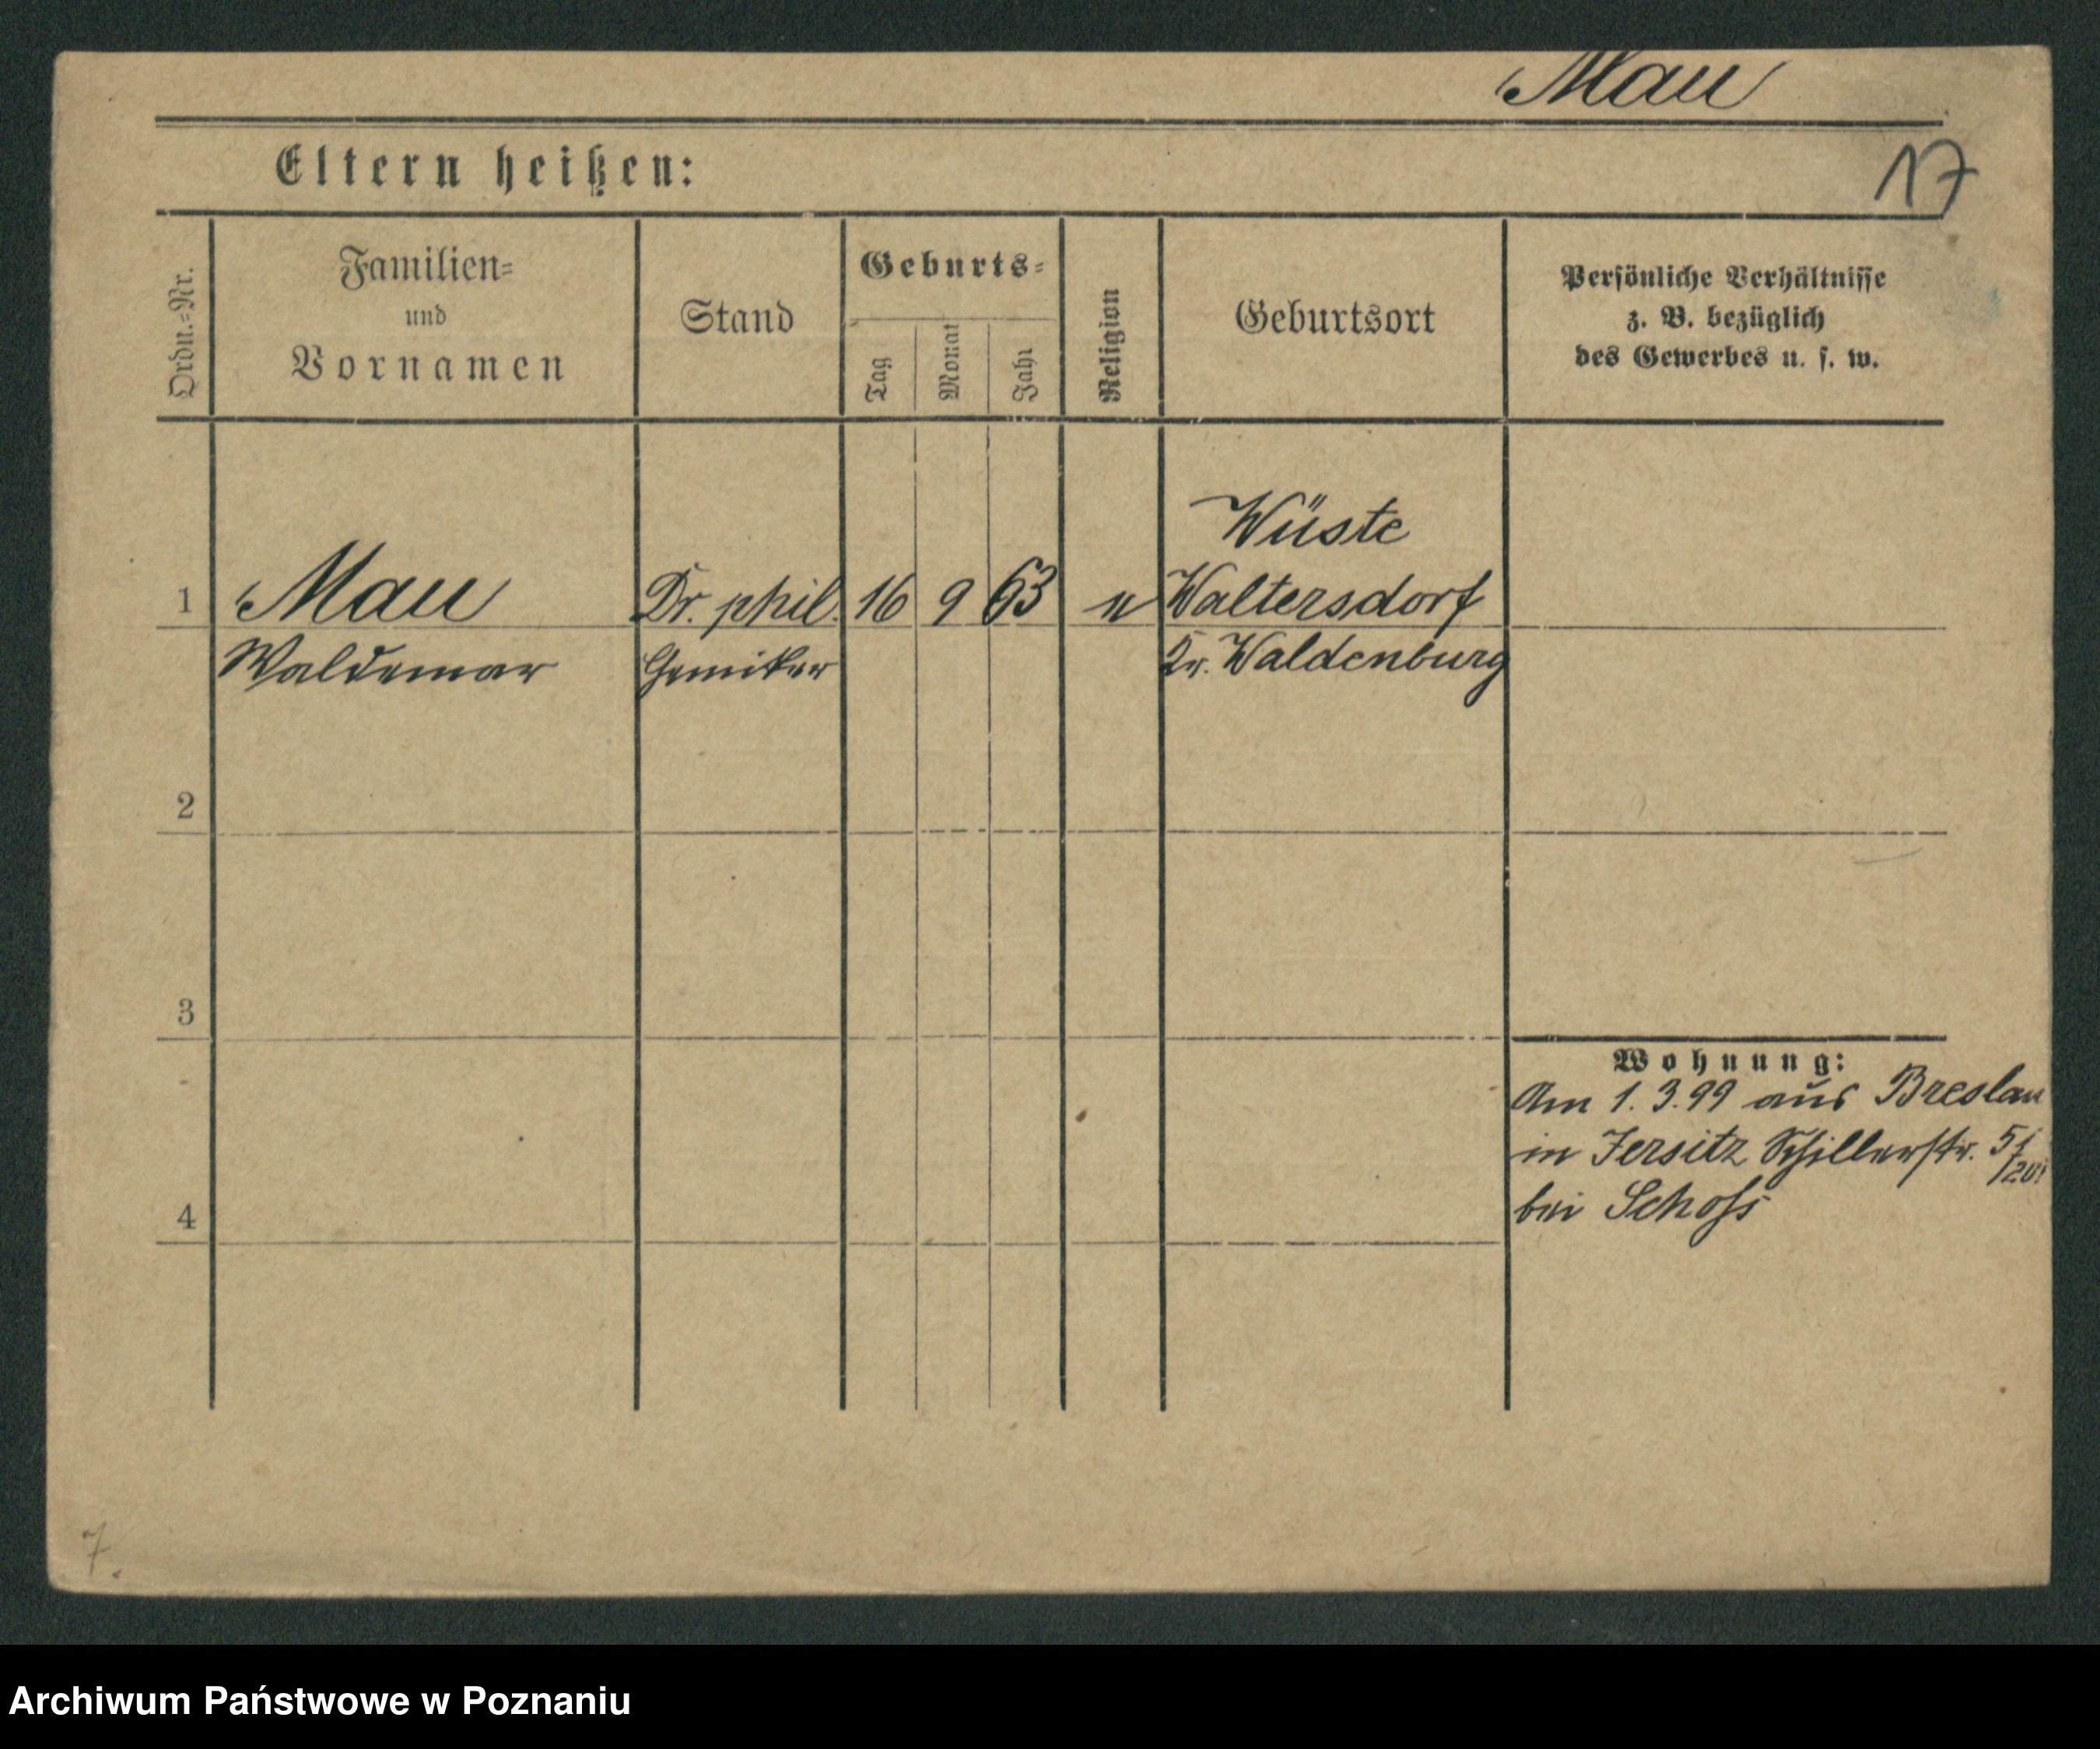 Mau
17
Eltern heißen:
Ordn.=Nr.
Familien=
und
Vornamen
Stand
Geburts=
Tag
Monat
Jahr
Religion
Geburtsort
Persönliche Verhältnisse
z. B. bezüglich
des Gewerbes u. s. w.
Wüste
1 Mau Dr. phil. 16 9 63 Waltersdorf
Waldemar Kr. Waldenburg
2
3
Wohnung:
Am 1. 3. 99 aus Breslau
in Jersitz Schillerstr. 5
bei Schoß
4
7.
Archiwum Państwowe w Poznaniu